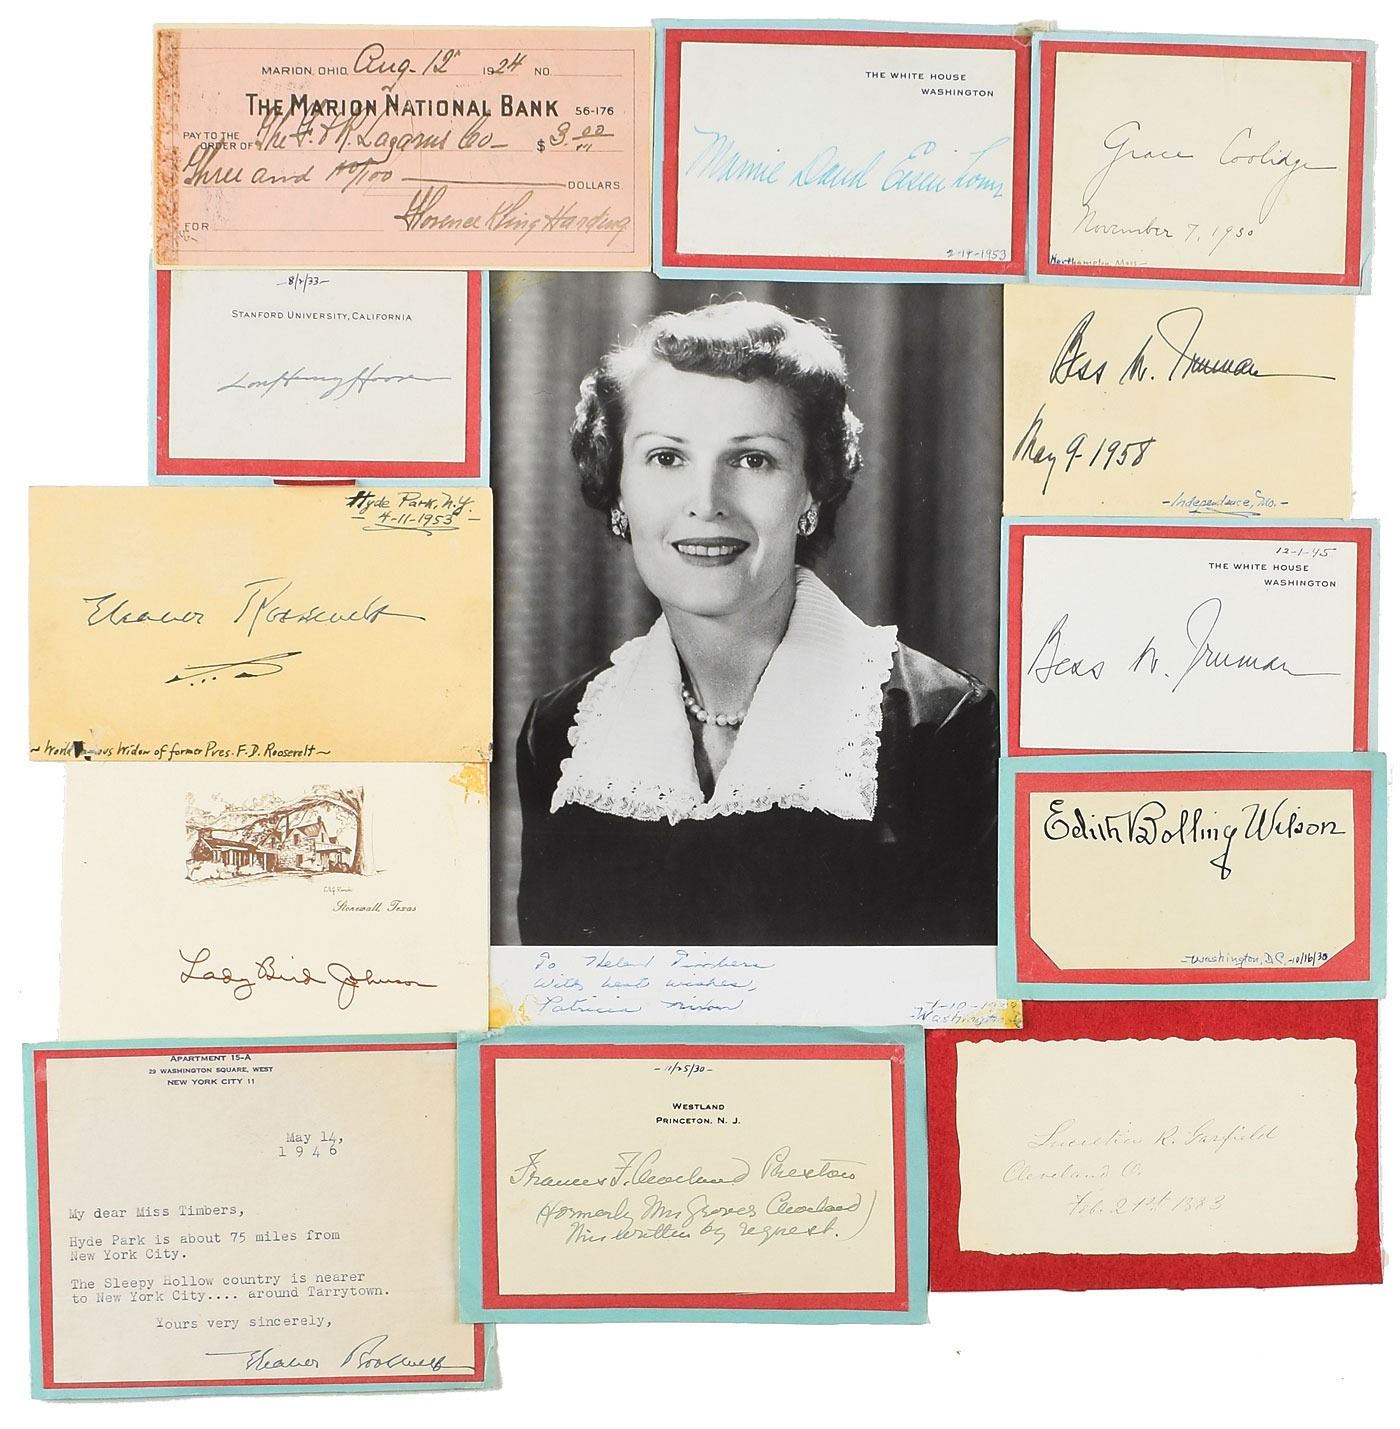 MARION, OHIO, Aug. 12" 1924 NO.
THE MARION NATIONAL BANK 56-176
PAY TO THE
ORDER OF The F. & R. Lazarus Co — $ 3.00
Three and no/100 DOLLARS
FOR
Florence Kling Harding
THE WHITE HOUSE
WASHINGTON
Mamie Doud Eisenhower
2-14-1953
Grace Coolidge
November 7, 1930
Northampton, Mass—
—8/2/33—
STANFORD UNIVERSITY, CALIFORNIA
Lou Henry Hoover
Bess W. Truman
May 9-1958
-Independence, Mo.-
Hyde Park, N.Y.
- 4-11-1953 -
Eleanor Roosevelt
~ World Famous Widow of former Pres. F.D. Roosevelt ~
12-1-45
THE WHITE HOUSE
WASHINGTON
Bess W. Truman
Stonewall, Texas
Lady Bird Johnson
Edith Bolling Wilson
-Washington, D.C.-10/16/38
To Helen Timbers
With best wishes,
Patricia Nixon
-Washington
APARTMENT 15-A
29 WASHINGTON SQUARE, WEST
NEW YORK CITY 11
May 14,
1 9 4 6
My dear Miss Timbers,
Hyde Park is about 75 miles from
New York City.
The Sleepy Hollow country is nearer
to New York City.... around Tarrytown.
Yours very sincerely,
Eleanor Roosevelt
-11/25/30-
WESTLAND
PRINCETON, N. J.
Frances F. Cleveland Preston
(formerly Mrs Grover Cleveland)
written by request.)
Lucretia R. Garfield
Cleveland O.
Feb. 21st 1883